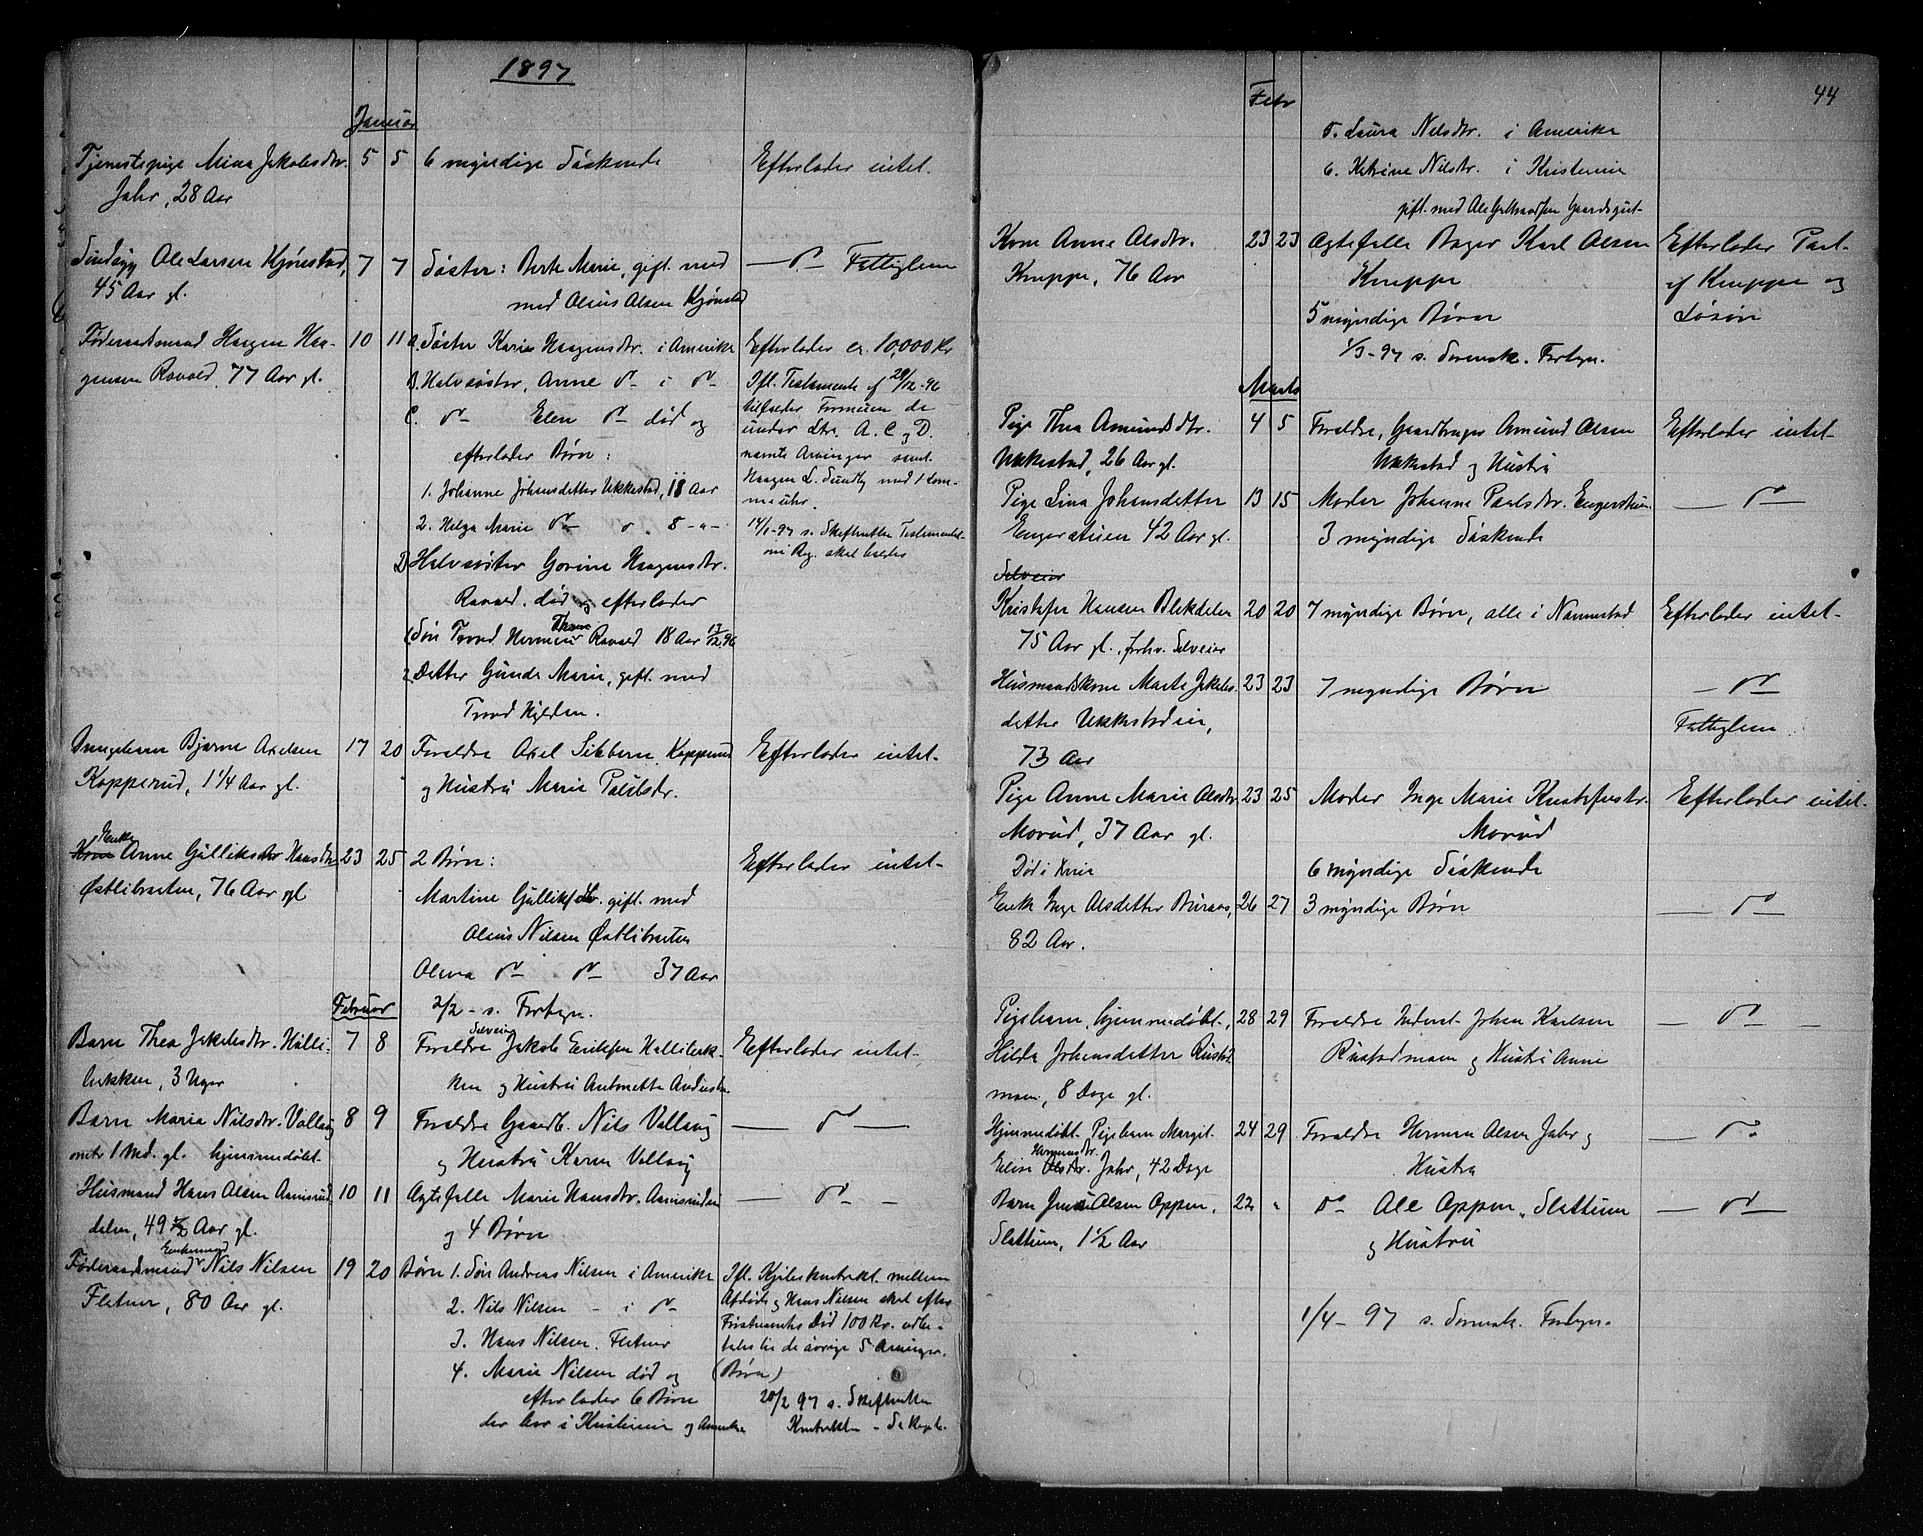 1897
Januar
Tjenestepige Mina Jakobsdtr. 5 5 6 myndige Søskende Efterlader intet.
Jahr, 28 Aar
Sindssyg Ole Larsen Kjønstad, 7 7 Søster: Berte Marie, gift med — do — Fattiglem
45 Aar gl. med Olaus Olsen Kjønstad
Føderaadsmand Haagen Haa- 10 11 A. Søster Karie Haagensdtr. i Amerika Efterlader ca. 10,000 Kr
gensen Ravald, 77 Aar gl. B. Halvsøster, Anne do i do Ifl. Testamente af 29/12-96
C. do Elen do død og tilfalder Formuen de
efterlader Børn: under Ltr. A. C og D.
nævnte Arvinger samt
1. Johanne Johansdatter Ukkestad, 18 Aar Haagen L. Sundby med 1 Lom-
meuhr.
2. Helga Marie do 8 - " - 14/1-97 s. Skifteretten Testamentet
D Halvsøster Gorine Haagensdtr. skal
Ravald. død og efterlader
1 Søn Trond Herman Thorn Ravald 18 Aar 13/12 96
2 Datter Gunda Marie, gift med
Trond
Drengebarn Bjarne Axelsen 17 20 Forældre Axel Sibbern Kopperud Efterlader intet-
Kopperud, 1 1/4 Aar gl. og Hustru Marie Paulsdr.
Enke
Kone Anne Gulliksdtr Hansdtr 23 25 2 Børn: Efterlader intet-
Østlibraaten, 76 Aar gl Martine Gulliksdtr. gift med
Olaus Nilsen Østlibraaten
Olava do do 37 Aar
Februar 2/2 - s. Fortegn.
Selveier
Barn Thea Jakobsdtr. Halli- 7 8 Forældre Jakob Eriksen Hallibæk- Efterlader intet-
bækken, 3 Uger ken og Hustru Antonette
Barn Maria Nilsdtr. Vollaug 8 9 Forældre Gaardb. Nils Vollaug — do —
1 Md. gl. hjemmedøbt- og Hustru Karen Vollaug
Husmand Hans Olsen Aamrud 10 11 Ægtefælle Marie Hansdtr. — do —
dalen, 49 1/2 Aar gl. og 4 Børn
Enkemand
Føderaadsmand Nils Nilsen 19 20 Børn 1. Søn Andreas Nilsen i Amerika Ifl. Kjøbekontrakt mellem
Flatner, 80 Aar gl. 2. Nils Nilsen - i do Afdøde og Hans Nilsen skal efter
Førstnævntes Død 100 Kr. udbe-
3. Hans Nilsen Flatner tales til de øvrige 5 Arvinger.
4. Marie Nilsen død og (Børn)
efterlader 6 Børn 20/2 97 s. Skifteretten
der bor i Kristiania og Amerika Kontrakten -
44
Febr
5. Laura Nilsdtr. i Amerika
6. Katrine Nilsdtr. i Kristiania
gift med Ole
Kone Anne Olsdtr. 23 23 Ægtefælle Bager Karl Olsen Efterlader Part
Knappe, 76 Aar Knappe af Knappe og
5 myndige Børn Løsøre
1/3-97 s. Sorensk. Fortegn.
Marts
Pige Thea Amundsdtr. 4 5 Forældre, Gaardbruger Amund Olsen Efterlader intet-
Ukkestad, 26 Aar gl. Ukkestad og Hustru
Pige Lina Johansdatter 13 15 Moder Johanne Paulsdtr. Engerstuen — do —
Engerstuen 42 Aar gl. 3 myndige Søskende
Selveier
Kristofer Hansen Blekdalen 20 20 7 myndige Børn, alle i Nannestad Efterlader intet-
75 Aar gl., forhv. Selveier
Husmandskone Marte Jakobs- 23 23 7 myndige Børn — do —
datter Ukkestadeie, Fattiglem
73 Aar
Pige Anne Marie Olsdtr 23 25 Moder Inge Marie Kristofersdtr. Efterlader intet-
Morud, 37 Aar gl. Morud
Død i Xnia 6 myndige Søskende
Enke Inge Olsdatter Buraas, 26 27 3 myndige Børn — do —
82 Aar.
Pigebarn, hjemmedøbt-, 28 29 Forældre Inderst Johan Karlsen — do —
Hilda Johansdatter Rustad- Rustadmoen og Hustru Anne
moen, 8 Dage gl.
Hjemmedøbt- Pigebarn Margit 24 29 Forældre Herman Olsen Jahr og — do —
Hermansdtr.
Elise Olsdtr. Jahr, 42 Dage Hustru
Barn Olsen Oppen, 22 " do Ole Oppen, Slattum — do —
Slattum, 1 1/2 Aar og Hustru
1/4 - 97 s. Sorensk. Fortegn.